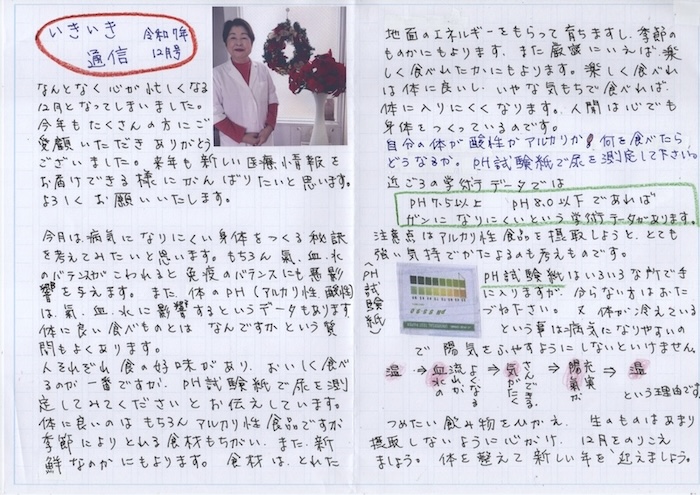 いきいき
通信
令和7年
12月号
なんとなく心が忙しくなる
12月となってしまいました。
今年もたくさんの方にご
愛顧いただきありがとう
ございました。来年も新しい医療情報を
お届けできる様にがんばりたいと思います。
よろしくお願いいたします。
今月は病気になりにくい身体をつくる秘訣
を考えてみたいと思います。もちろん氣、血、水
のバランスがこわれると免疫のバランスにも悪影
響を与えます。また、体のPH(アルカリ性,酸性)
は、氣、血、水に影響するというデータもあります。
体に良い食べものとはなんですかという質
問もよくあります。
人それぞれ食の好味があり、おいしく食べ
るのが一番ですが、PH試験紙で尿を測
定してみてくださいとお伝えしています。
体に良いのはもちろんアルカリ性食品ですが
季節によりとれる食材もちがい、また、新
鮮なのかにもよります。食材は、とれた
地面のエネルギーをもらって育ちますし、季節の
ものかにもよります。また厳密にいえば、楽
しく食べれたかにもよります。楽しく食べれ
は体に良いし、いやな気もちで食べれば、
体に入りにくくなります。人間は心でも
身体をつくっているのです。
自分の体が酸性かアルカリか、何を食べたら
どうなるか。PH試験紙で尿を測定して下さい。
近ごろの学術データでは
PH7.5以上 PH8.0以下であれば
ガンになりにくいという学術データがあります。
注意点はアルカリ性食品を摂取しようと、とても
強い気持でかたよるのも考えものです。
(PH試験紙)
PH試験紙はいろいろな所で手
に入りますが、分らない方はおた
づね下さい。又体が冷えている
という事は病気になりやすいの
で陽気をふやすようにしないといけません。
温⇒血水の流れがよくなる⇒気がたくさんできる⇒陽気が充実⇒温
という理由です。
つめたい飲み物をひかえ、生のものはあまり
摂取しないように心がけ、12月をのりこえ
ましょう。体を整えて新しい年を迎えましょう。